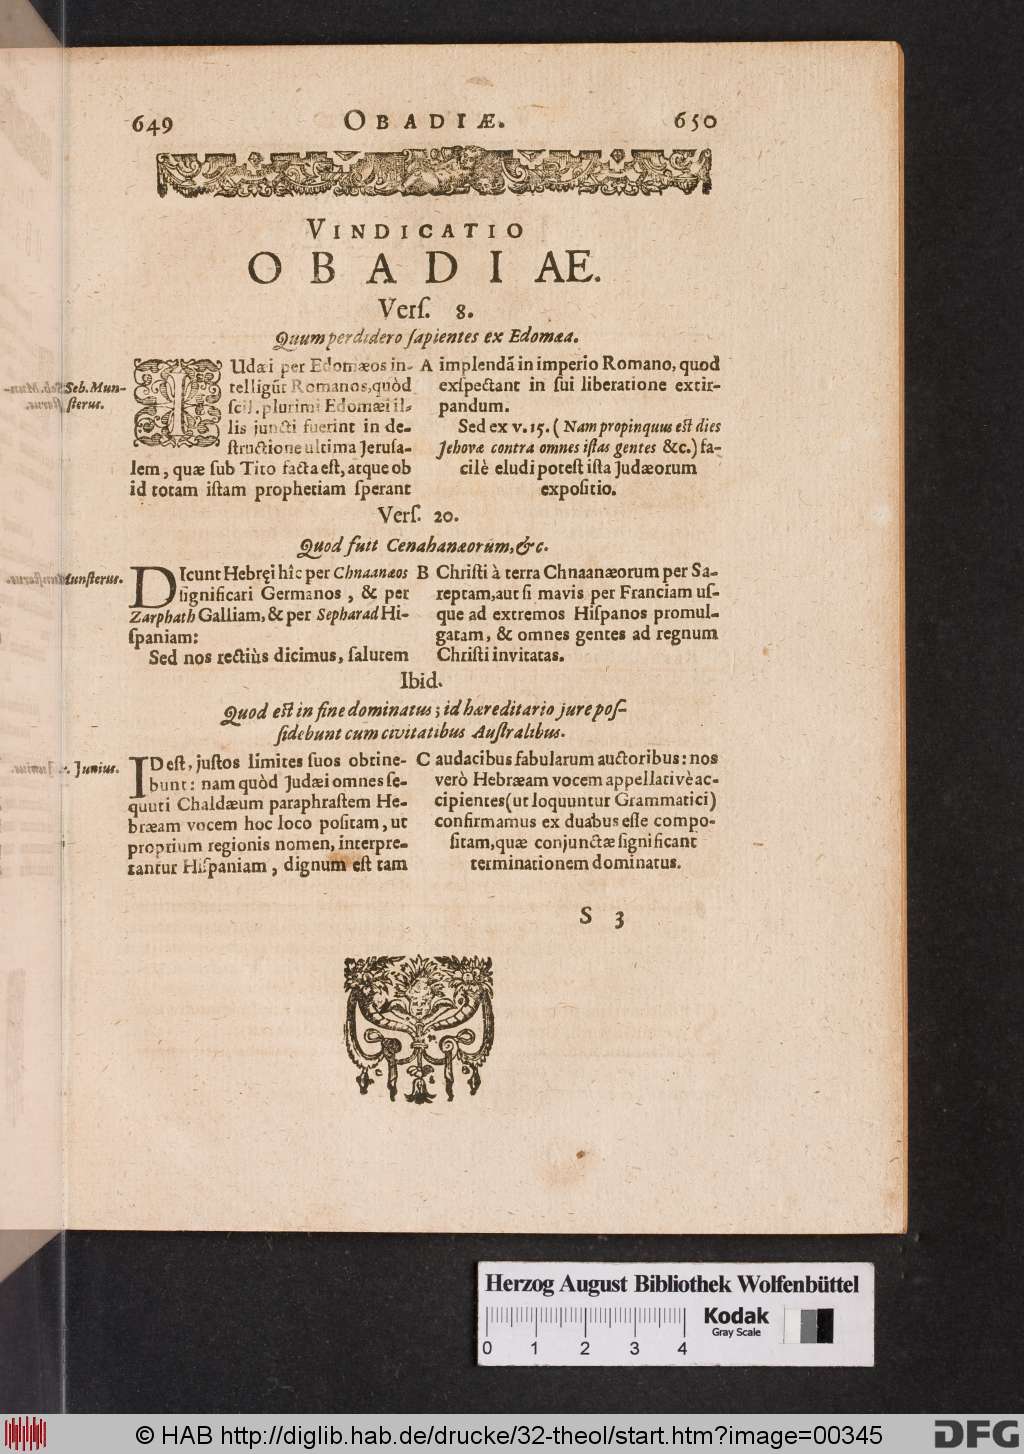 649 OBADIÆ. 650
VINDICATIO
OBADIAE.
Verſ. 8.
Quum perdidero ſapientes ex Edomæa.
Seb. Mun-
ſterus.
IUdæi per Edomæos in-
telligũt Romanos, quòd
ſcil. plurimi Edomæi il-
lis juncti fuerint in de-
ſtructione ultima Jeruſa-
lem, quæ ſub Tito facta eſt, atque ob
id totam iſtam prophetiam ſperant
A implendã in imperio Romano, quod
exſpectant in ſui liberatione extir-
pandum.
Sed ex v. 15. (Nam propinquus eſt dies
Jehovæ contra omnes iſtas gentes &c.) fa-
cilè eludi poteſt iſta Judæorum
expoſitio.
Verſ. 20.
Quod fuit Cenahanæorum, &c.
Munſterus.
DIcunt Hebręi hîc per Chnaanæos
ſignificari Germanos, & per
Zarphath Galliam, & per Sepharad Hi-
ſpaniam:
Sed nos rectiùs dicimus, ſalutem
B Chriſti à terra Chnaanæorum per Sa-
reptam, aut ſi mavis per Franciam uſ-
que ad extremos Hiſpanos promul-
gatam, & omnes gentes ad regnum
Chriſti invitatas.
Ibid.
Quod eſt in fine dominatus; id hæreditario jure poſ-
ſidebunt cum civitatibus Auſtralibus.
Junius.
ID eſt, juſtos limites ſuos obtine-
bunt: nam quòd Judæi omnes ſe-
quuti Chaldæum paraphraſtem He-
bræam vocem hoc loco poſitam, ut
proprium regionis nomen, interpre-
tantur Hiſpaniam, dignum eſt tam
C audacibus fabularum auctoribus: nos
verò Hebræam vocem appellativè ac-
cipientes (ut loquuntur Grammatici)
confirmamus ex duabus eſſe compo-
ſitam, quæ conjunctæ ſignificant
terminationem dominatus.
S 3
Herzog August Bibliothek Wolfenbüttel
Kodak
Gray Scale
0 1 2 3 4
© HAB http://diglib.hab.de/drucke/32-theol/start.htm?image=00345
DFG